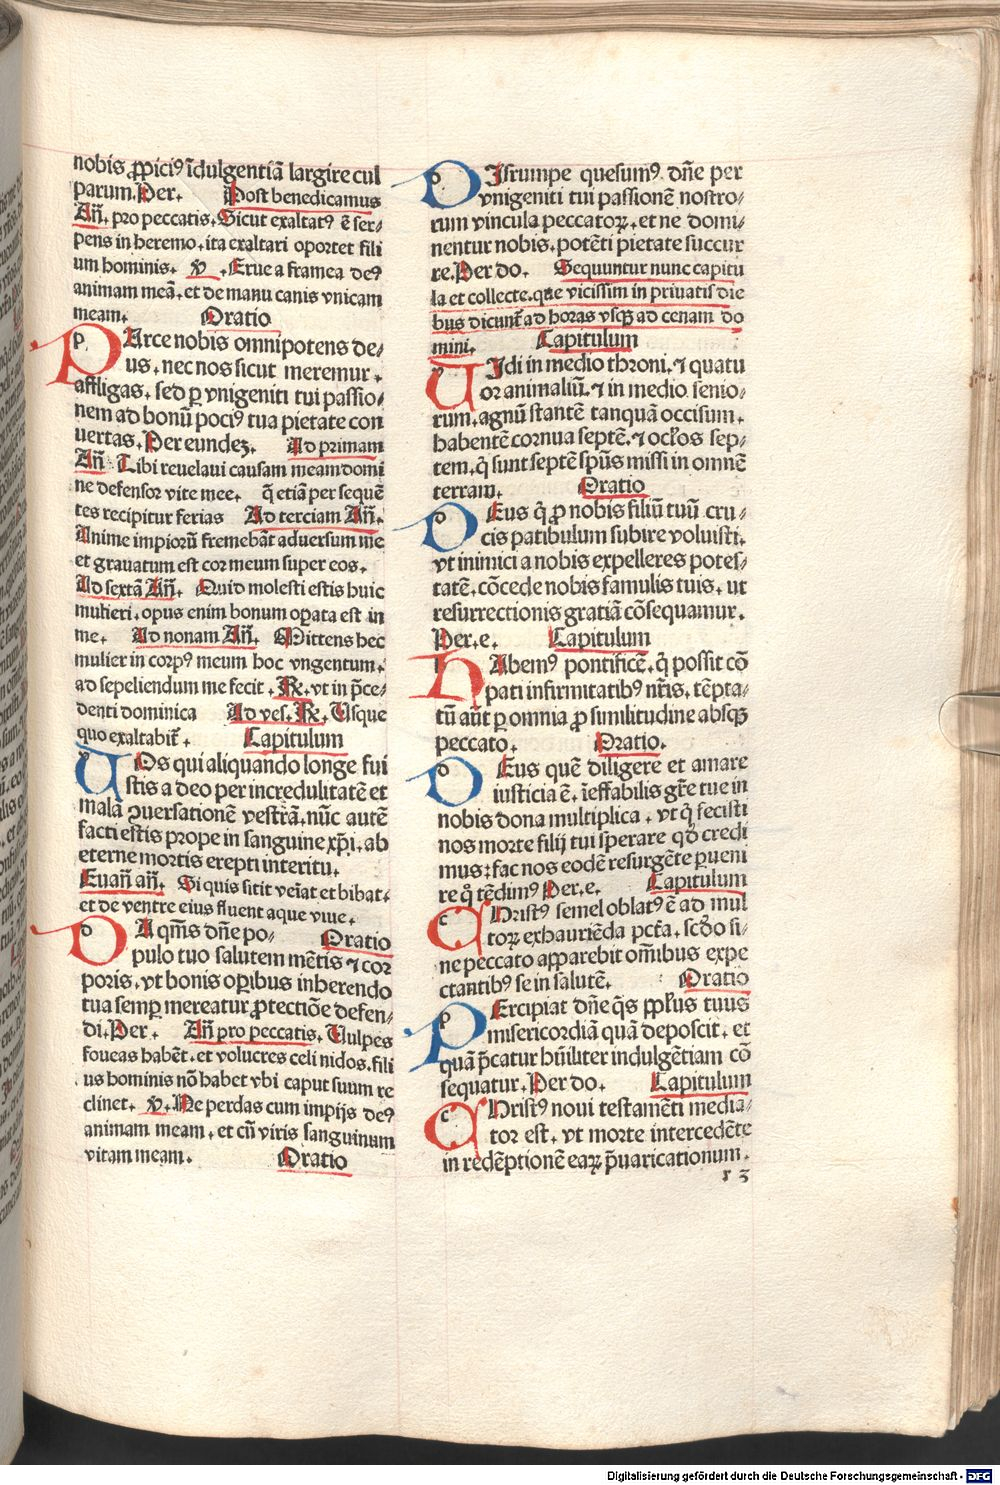 nobis ꝓpiciꝰ īdulgentiā largire cul
parum. Per. Post benedicamus
Añ. pro peccatis. Sicut exaltatꝰ ē ser⸗
pens in heremo. ita exaltari oportet fili
um hominis. ꝟ. Erue a framea deꝰ
animam meā. et de manu canis vnicam
meam. Oratio
PArce nobis omnipotens de⸗
us. nec nos sicut meremur.
affligas. sed ꝑ vnigeniti tui passio⸗
nem ad bonū pociꝰ tua pietate con
uertas. Per eundeꝫ. Ad primam
Añ. Tibi reuelaui causam meam domi
ne defensor vite mee. q̄ etiā per sequē
tes recipitur ferias Ad terciam Añ.
Anime impiorū fremebāt aduersum me
et grauatum est cor meum super eos.
Ad sextā Añ. Quid molesti estis huic
mulieri. opus enim bonum oꝑata est in
me. Ad nonam Añ. Mittens hec
mulier in corpꝰ meum hoc vngentum.
ad sepeliendum me fecit. ℞. vt in p̄ce⸗
denti dominica Ad ves. ℞. Usque
quo exaltabit̄. Capitulum
UOs qui aliquando longe fui
stis a deo per incredulitatē et
malā ꝯuersationē vestrā. nūc autē
facti estis prope in sanguine xp̄i. ab
eterne mortis erepti interitu.
Euan̄ an̄. Si quis sitit veīat et bibat.
et de ventre eius fluent aque viue.
DA qm̄s dn̄e po⸗ Oratio
pulo tuo salutem mētis ⁊ cor
poris. vt bonis oꝑibus inherendo
tua semꝑ mereatur ꝓtectiōe defen⸗
di. Per. Añ pro peccatis. Vulpes
foueas habēt. et volucres celi nidos. fili
us hominis nō habet vbi caput suum re
clinet. ꝟ. Ne perdas cum impijs deꝰ
animam meam. et cū viris sanguinum
vitam meam. Oratio
DIsrumpe quesumꝰ dn̄e per
vnigeniti tui passionē nostro⸗
rum vincula peccatoꝝ. et ne domi⸗
nentur nobis. potēti pietate succur
re. Per do. Sequuntur nunc capitu
la et collecte. que vicissim in priuatis die
bus dicunt̄ ad horas vsqꝫ ad cenam do
mini. Capitulum
UIdi in medio throni. ⁊ quatu
or animaliū. ⁊ in medio senio⸗
rum. agnū stantē tanquā occisum.
habentē cornua septē. ⁊ oc̄los sep⸗
tem. q̄ sunt septē spūs missi in omnē
terram. Oratio
DEus q̄ ꝓ nobis filiū tuū cru⸗
cis patibulum subire voluisti.
vt inimici a nobis expelleres potes⸗
tatē. cōcede nobis famulis tuis. ut
resurrectionis gratiā cōsequamur.
Per. e. Capitulum
HAbemꝰ pontificē. q̄ possit cō
pati infirmitatibꝰ nr̄is. tēpta⸗
tū aūt ꝑ omnia ꝓ similitudine absqꝫ
peccato. Oratio.
DEus quē diligere et amare
iusticia ē. īeffabilis gr̄e tue in
nobis dona multiplica. vt q̄ fecisti
nos morte filij tui sperare qd̄ credi
mus: fac nos eodē resurgēte ꝑueni
re q̊ tēdimꝰ Per. e. Capitulum
CHristꝰ semel oblatꝰ ē ad mul
toꝝ exhauriēda pct̄a. scd̄o si⸗
ne peccato apparebit om̄ibus expe
ctantibꝰ se in salutē. Oratio
PErcipiat dn̄e q̄s pp̄lus tuus
misericordiā quā deposcit. et
quā p̄catur hūiliter indulgētiam cō
sequatur. Per do. Capitulum
CHristꝰ noui testamēti media⸗
tor est. vt morte intercedēte
in redēptionē eaꝝ p̄uaricationum.
r 3
Digitalisierung gefördert durch die Deutsche Forschungsgemeinschaft - DFG